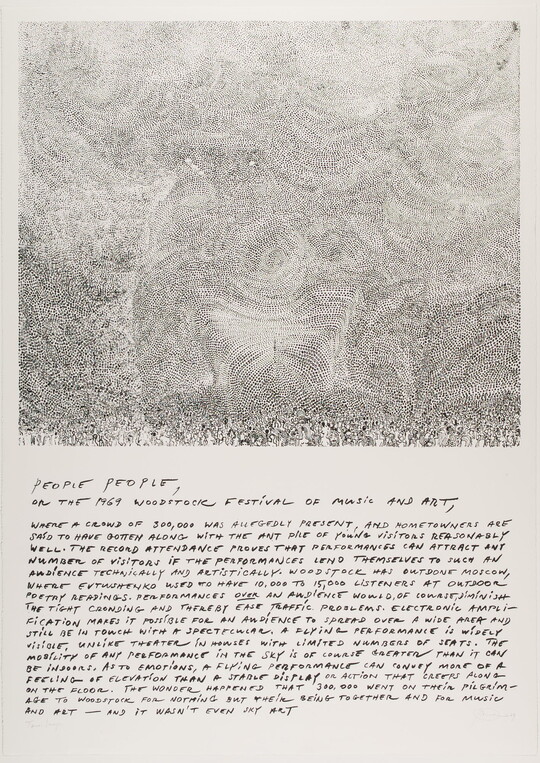 PEOPLE PEOPLE,
OR THE 1969 WOODSTOCK FESTIVAL OF MUSIC AND ART,
WHERE A CROWD OF 300,000 WAS ALLEGEDLY PRESENT, AND HOMETOWNERS ARE
SAID TO HAVE GOTTEN ALONG WITH THE ANT PILE OF YOUNG VISITORS REASONABLY
WELL. THE RECORD ATTENDANCE PROVES THAT PERFORMANCES CAN ATTRACT ANY
NUMBER OF VISITORS IF THE PERFORMANCES LEND THEMSELVES TO SUCH AN
AUDIENCE TECHNICALLY AND ARTISTICALLY. WOODSTOCK HAS OUTDONE MOSCOW,
WHERE EVTUSHENKO USED TO HAVE 10,000 TO 15,000 LISTENERS AT OUTDOOR
POETRY READINGS. PERFORMANCES OVER AN AUDIENCE WOULD, OF COURSE, DIMINISH
THE TIGHT CRONDING AND THEREBY EASE TRAFFIC PROBLEMS. ELECTRONIC AMPLI-
FICATION MAKES IT POSSIBLE FOR AN AUDIENCE TO SPREAD OVER A WIDE AREA AND
STILL BE IN TOUCH WITH A SPECTECULAR. A FLYING PERFORMANCE IS WIDELY
VISIBLE, UNLIKE THEATER IN HOUSES WITH LIMITED NUMBERS OF SEATS. THE
MOBILITY OF ANY PERFORMANCE IN THE SKY IS OF COURSE GREATER THAN IT CAN
BE INDOORS. AS TO EMOTIONS, A FLYING PERFORMANCE CAN CONVEY MORE OF A
FEELING OF ELEVATION THAN A STABLE DISPLAY OR ACTION THAT CREEPS ALONG
ON THE FLOOR. THE WONDER HAPPENED THAT 300,000 WENT ON THEIR PILGRIM-
AGE TO WOODSTOCK FOR NOTHING BUT THEIR BEING TOGETHER AND FOR MUSIC
AND ART — AND IT WASN'T EVEN SKY ART